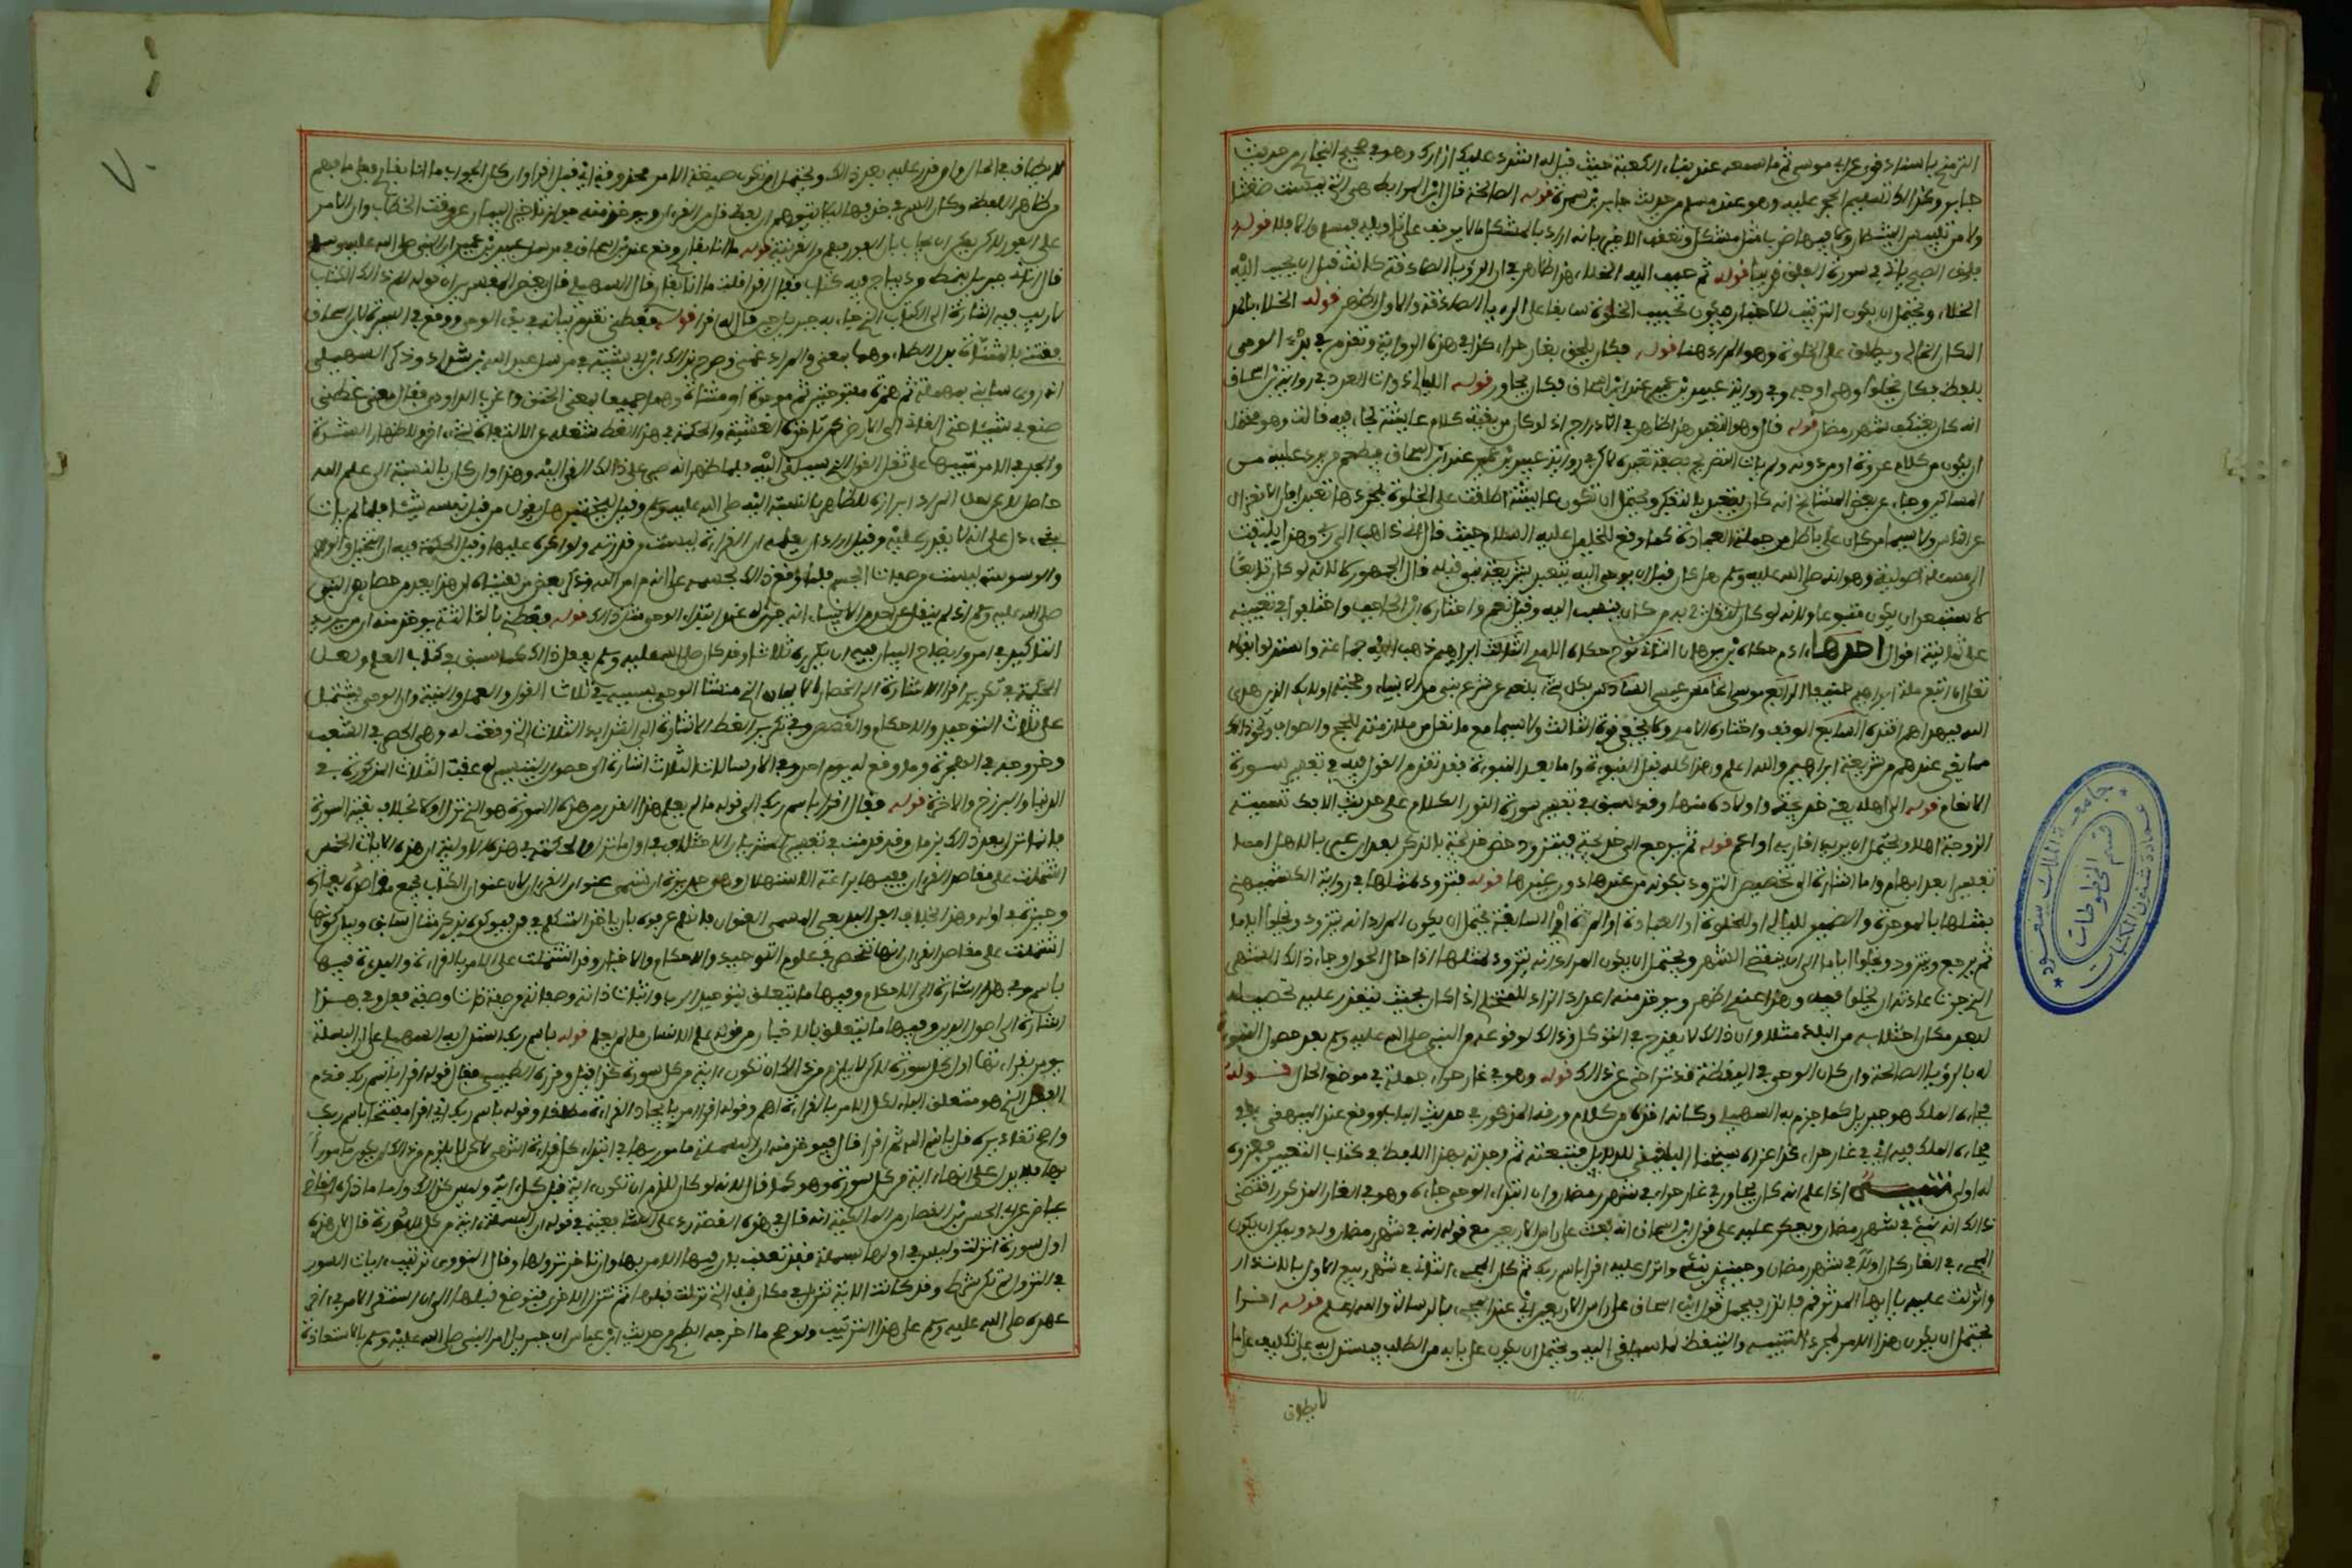 الترمذي باسناد قوي عن ابي موسى ثم ما سمعه عند بناء الكعبة حيث قيل له اشدد عليك ازارك وهو في صحيح البخاري من حديث
جابر وكذلك تسليم الحجر عليه وهو عند مسلم من حديث جابر بن سمرة قوله الصالحة قال ابن المرابط هي التي ليست ضغثا
ولا من تلبيس الشيطان ولا فيها ضرب مثل مشكل وتعقب الاخير بانه ان اراد بالمشكل ما لا يوقف على تاويله فمسلم والا فلا قوله
فلق الصبح ياتي في سورة الفلق قريبا قوله ثم حبب اليه الخلاء هذا ظاهر في ان الرؤيا الصادقة كانت قبل ان يحبب اليه
الخلاء ويحتمل ان يكون الترتيب للاخبار فيكون تحبيب الخلوة سابقا على الرؤيا الصادقة والاول اظهر قوله الخلاء بالمد
المكان الخالي ويطلق على الخلوة وهو المراد هنا قوله فكان يلحق بغار حراء كذا في هذه الرواية وتقدم في بدء الوحي
بلفظ فكان يخلوا وهي اوجه وفي رواية عبيد بن عمير عند ابن اسحاق فكان يجاور قوله الليالي ذوات العدد في رواية ابن اسحاق
انه كان يعتكف شهر رمضان قوله قال وهو التعبد هذا ظاهر في الادراج اذ لو كان من بقية كلام عائشة لجاء فيه قالت وهو محتمل
ان يكون من كلام عروة او من دونه ولم يات التصريح بصفة تعبده لكن في رواية عبيد بن عمير عند ابن اسحاق فيطعم من يرد عليه من
المساكين وجاء عن بعض المشايخ انه كان يتعبد بالتفكر ويحتمل ان تكون عائشة اطلقت على الخلوة بمجردها تعبدا فان الانعزال
عن الناس ولا سيما من كان على باطل من جملة العبادة كما وقع للخليل عليه السلام حيث قال اني ذاهب الى ربي وهذا يلتفت
الى مسئلة اصولية وهو انه صلى الله عليه وسلم هل كان قبل ان يوحى اليه متعبدا بشريعة نبي قبله قال الجمهور لا لانه لو كان تابعا
لاستبعد ان يكون متبوعا ولانه لو كان لنقل من كان ينسب اليه وقيل نعم واختاره ابن الحاجب واختلفوا في تعيينه
على ثمانية اقوال احدها ادم حكاه ابن برهان الثاني نوح حكاه الامدي الثالث ابراهيم ذهب اليه جماعة واستدلوا بقوله
تعالى ان اتبع ملة ابراهيم حنيفا الرابع موسى الخامس عيسى السادس بكل شيء بلغه عن شرع نبي من الانبياء وحجته اولئك الذين هدى
الله فبهداهم اقتده السابع الوقف واختاره الامدي ولا يخفى قوة الثالث ولا سيما مع ما نقل من ملازمته للحج والطواف ونحو ذلك
مما بقي عندهم من شريعة ابراهيم والله اعلم وهذا كله قبل النبوة واما بعد النبوة فقد تقدم القول فيه في تفسير سورة
الانعام قوله الى اهله يعني خديجة واولاده منها وقد سبق في تفسير سورة النور الكلام على حديث الافك تسمية
الزوجة اهلا ويحتمل ان يريد اقاربه او اعم قوله ثم يرجع الى خديجة فيتزود خص خديجة بالذكر بعد ان عبر بالاهل اما
تفسيرا بعد ابهام واما اشارة الى تخصيص التزود بكونه من عندها دون غيرها قوله فتزوده لمثلها في رواية الكشميهني
بمثلها بالموحدة والضمير لليالي او للخلوة او العبادة او المرة السابقة يحتمل ان يكون المراد انه يتزود ويخلوا اياما
ثم يرجع ويتزود ويخلوا اياما الى ان ينقضي الشهر ويحتمل ان يكون المراد انه يتزود لمثلها اذا حال الحول وجاء ذلك الشهر
الذي جرت عادته ان يخلوا فيه وهذا عندي اظهر ويؤخذ منه اعداد الزاد للمختلي اذا كان بحيث يتعذر عليه تحصيله
لبعد مكان اختلائه من البلد مثلا وان ذلك لا يقدح في التوكل وذلك لوقوعه من النبي صلى الله عليه وسلم بعد حصول النبوة
له بالرؤيا الصالحة وان كان الوحي في اليقظة قد تراخى عن ذلك قوله وهو في غار حراء جملة في موضع الحال قوله
فجاءه الملك هو جبريل كما جزم به السهيلي وكانه اخذه من كلام ورقة المذكور في حديث الباب ووقع عند البيهقي
فجاءه الملك فيه اي في غار حراء كذا عزاه شيخنا البلقيني للدلائل فتبعته ثم وجدته بهذا اللفظ في كتاب التعبير فعزوه
له اولى تنبيه اذا علم انه كان يجاور في غار حراء في شهر رمضان وان ابتداء الوحي جاءه وهو في الغار المذكور اقتضى
ذلك انه نبئ في شهر رمضان ويعكر عليه على قول ابن اسحاق انه بعث على راس الاربعين مع قوله انه في شهر رمضان ولد ويمكن ان يكون
المجيء في الغار كان اولا في شهر رمضان وحينئذ نبئ وانزل عليه اقرا باسم ربك ثم كان المجيء الثاني في شهر ربيع الاول بالانذار
وانزلت عليه يا ايها المدثر قم فانذر فيحمل قول ابن اسحاق على راس الاربعين اي عند المجيء بالرسالة والله اعلم قوله اقرا
يحتمل ان يكون هذا الامر لمجرد التنبيه والتيقظ لما سيلقى اليه ويحتمل ان يكون على بابه من الطلب فيستدل به على تكليف ما
لا يطاق
لا يطاق في الحال وان قدر عليه بعد ذلك ويحتمل ان تكون صيغة الامر محذوفة اي قل اقرا وان كان الجواب ما انا بقارئ فعلى ما فهم
من ظاهر اللفظ وكان السر في حذفها لئلا يتوهم ان لفظ قل من القران ويوخذ منه جواز تاخير البيان عن وقت الخطاب وان الامر
على الفور لكن يمكن ان يجاب بان الفور فهم من القرينة قوله ما انا بقارئ وقع عند ابن اسحاق في مرسل عبيد بن عمير ان النبي صلى الله عليه وسلم
قال اتاني جبريل بنمط من ديباج فيه كتاب فقال اقرا قلت ما انا بقارئ قال السهيلي قال بعض المفسرين ان قوله الم ذلك الكتاب
لا ريب فيه اشارة الى الكتاب الذي جاء به جبريل حين قال له اقرا قوله فغطني تقدم بيانه في بدء الوحي ووقع في السيرة لابن اسحاق
فغتني بالمثناة بدل الطاء وهما بمعنى والمراد غمني وصرح بذلك ابن ابي شيبة في مرسل عبد الله بن شداد وذكر السهيلي
انه روي سابني بمهملة ثم همزة مفتوحتين ثم موحدة او مثناة وهما جميعا بمعنى الخنق واغرب الداودي فقال معنى غطني
صنع بي شيئا حتى القاني الى الارض كمن تاخذه الغشية والحكمة في هذا الغط شغله عن الالتفات لشيء اخر او لاظهار الشدة
والجد في الامر تنبيها على ثقل القول الذي سيلقى اليه فلما ظهر انه صبر على ذلك القي اليه وهذا وان كان بالنسبة الى علم الله
حاصل لكن لعل المراد ابرازه للظاهر بالنسبة اليه صلى الله عليه وسلم وقيل ليختبر هل يقول من قبل نفسه شيئا فلما لم يات
بشيء دل على انه لا يقدر عليه وقيل اراد ان يعلمه ان القراءة ليست من قدرته ولو اكره عليها وقيل الحكمة فيه ان التخيل والوهم
والوسوسة ليست من صفات الجسم فلما وقع ذلك لجسمه علم انه من امر الله وذكر بعض من لقيناه ان هذا يعد من خصائص النبي
صلى الله عليه وسلم اذ لم ينقل عن احد من الانبياء انه جرى له عند ابتداء الوحي مثل ذلك قوله فغطني الثالثة يوخذ منه ان من يريد
التاكيد في امر وايضاح البيان فيه ان يكرره ثلاثا وقد كان صلى الله عليه وسلم يفعل ذلك كما سبق في كتاب العلم ولعل
الحكمة في تكرير اقرا الاشارة الى انحصار الايمان الذي ينشا الوحي بسببه في ثلاث القول والعمل والنية وان الوحي يشتمل
على ثلاث التوحيد والاحكام والقصص وفي تكرير الغط الاشارة الى الشدائد الثلاث التي وقعت له وهي الحصر في الشعب
وخروجه في الهجرة وما وقع له يوم احد وفي الارسالات الثلاث اشارة الى حصول التيسير له عقب الثلاث المذكورة في
الدنيا والبرزخ والاخرة قوله فقال اقرا باسم ربك الى قوله ما لم يعلم هذا القدر من هذه السورة هو الذي نزل اولا بخلاف بقية السورة
فانما نزل بعد ذلك بزمان وقد قدمت في تفسير المدثر بيان الاختلاف في اول ما نزل والحكمة في هذه الاولية ان هذه الايات الخمس
اشتملت على مقاصد القران ففيها براعة الاستهلال وهي جديرة ان تسمى عنوان القران لان عنوان الكتاب يجمع مقاصده بعبارة
وجيزة في اوله وهذا بخلاف الفن البديعي المسمى العنوان فانهم عرفوه بان ياخذ المتكلم في فن فيؤكده بذكر مثال سابق وبيان كونها
اشتملت على مقاصد القران انها تنحصر في علوم التوحيد والاحكام والاخبار وقد اشتملت على الامر بالقراءة والبداءة فيها
باسم وفي هذا الاشارة الى الاحكام وفيها ما يتعلق بتوحيد الرب واثبات ذاته وصفاته من صفة ذات وصفة فعل وفي هذا
اشارة الى اصول الدين وفيها ما يتعلق بالاخبار من قوله علم الانسان ما لم يعلم قوله باسم ربك استدل به السهيلي على ان البسملة
يومر بقراءتها اول كل سورة لكن لا يلزم من ذلك ان تكون اية من كل سورة كذا قال وقرره الطيبي فقال قوله اقرا باسم ربك قدم
الفعل الذي هو متعلق الباء لكون الامر بالقراءة اهم وقوله اقرا امر بايجاد القراءة مطلقا وقوله باسم ربك اي اقرا مفتتحا باسم ربك
واصح تقاديره قل باسم الله ثم اقرا قال فيوخذ منه ان البسملة مامور بها في ابتداء كل قراءة انتهى لكن لا يلزم من ذلك ان يكون مامورا
بها فلا يدل على انها اية من كل سورة وهو كما قال لانه لو كان للزم ان تكون اية قبل كل اية وليس كذلك واما ما ذكره القاضي
عياض عن ابي الحسن بن القصار من المالكية انه قال في هذه القصة رد على الشافعية في قوله ان البسملة اية من كل سورة قال لان هذه
اول سورة انزلت وليس في اولها بسملة فقد تعقب بان فيها الامر بها وان تاخر نزولها وقال النووي ترتيب ايات السور
في النزول لم يكن شرطا وقد كانت الاية تنزل في مكان قبل التي نزلت قبلها ثم تنزل الاخرى فتوضع قبلها الى ان استقر الامر في اخر
عهده صلى الله عليه وسلم على هذا الترتيب ولو صح ما اخرجه الطبري من حديث ابن عباس ان جبريل امر النبي صلى الله عليه وسلم بالاستعاذة
جامعة الملك سعود
عمادة شئون المكتبات
قسم المخطوطات